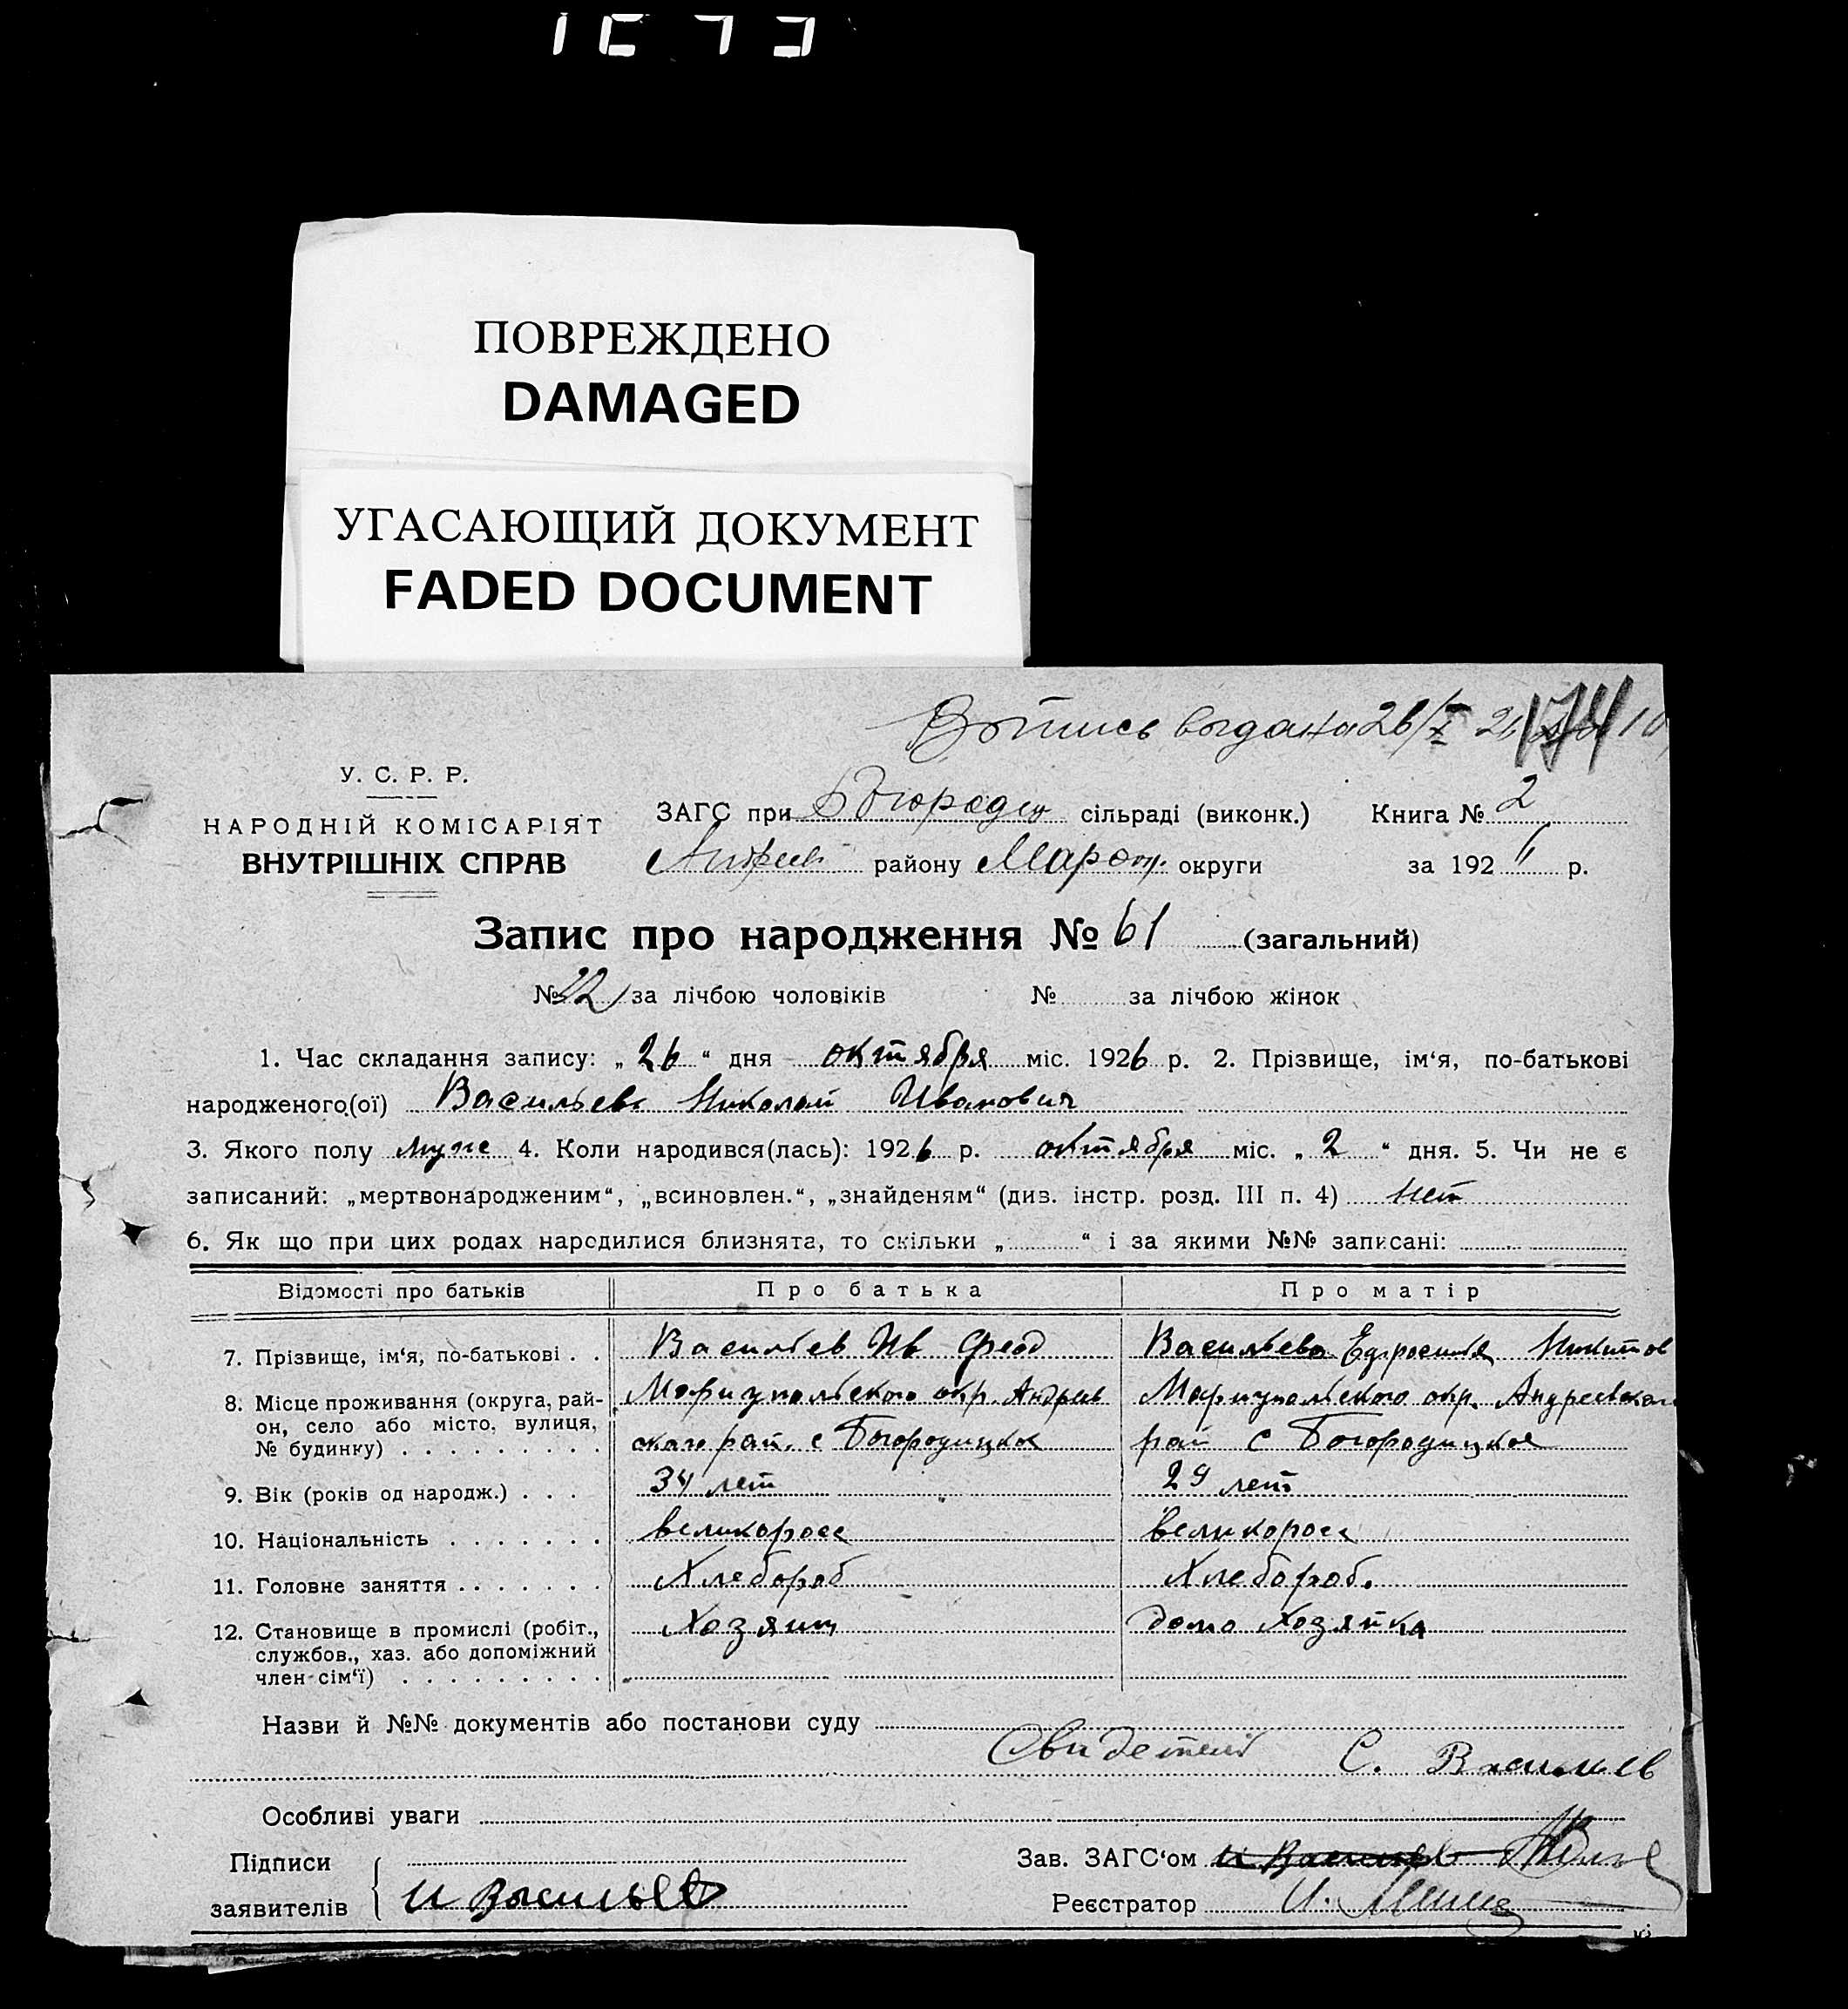 ПОВРЕЖДЕНО
DAMAGED
УГАСАЮЩИЙ ДОКУМЕНТ
FADED DOCUMENT
выдана 26/X
174
У. С. Р. Р.
НАРОДНІЙ КОМІСАРІЯТ
ВНУТРІШНІХ СПРАВ
ЗАГС при Богородиц сільраді (виконк.) Книга № 2
Андреев району Мароп. округи за 1926 р.
Запис про народження № 61 (загальний)
№ 22 за лічбою чоловіків № за лічбою жінок
1. Час складання запису: „26“ дня октября міс. 1926 р. 2. Прізвище, ім‘я, по-батькові
народженого(ої) Васильев Николай Иванович
3. Якого полу муже 4. Коли народився(лась): 1926 р. октября міс. „2“ дня. 5. Чи не є
записаний: „мертвонародженим“, „всиновлен.“, „знайденям“ (див. інстр. розд. III п. 4) нет
6. Як що при цих родах народилися близнята, то скільки „ “ і за якими №№ записані:
Відомості про батьків Про батька Про матір
7. Прізвище, ім‘я, по-батькові . . Васильев Ив Феод Васильева Ефросиния Никитов
8. Місце проживання (округа, рай- Мариупольского окр. Андреев Мариупольского окр. Андреевского
он, село або місто, вулиця,
№ будинку) . . . . . . . . . ского рай. с Богородицкое рай с Богородицкое
9. Вік (років од народж.) . . . 34 лет 29 лет
10. Національність . . . . . . . великоросс великоросс
11. Головне заняття . . . . . . . Хлебороб Хлебороб.
12. Становище в промислі (робіт., Хозяин домо Хозяйка
службов., хаз. або допоміжний
член сім‘ї) . . . . . . . . .
Назви й №№ документів або постанови суду
Свидетели С. Васильев
Особливі уваги
Підписи Зав. ЗАГС‘ом И Васильев
заявителів И Васильев Реєстратор И.